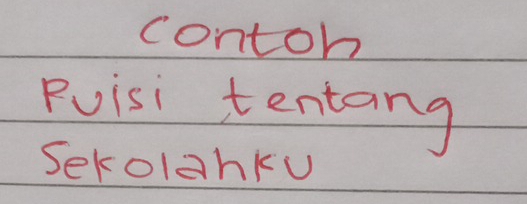 Contoh
Puisi tentang
Sekolahku